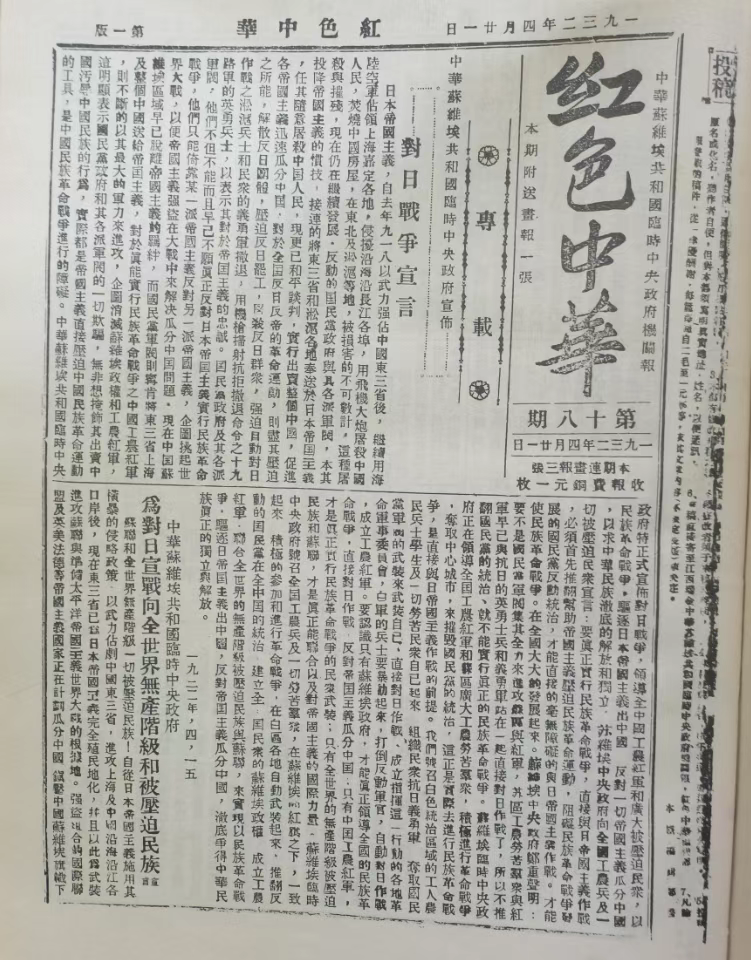 一九三二年四月廿一日
紅色中華
第一版
投稿
中華蘇維埃共和國臨時中央政府機關報
紅色中華
本期附送畫報一張
第十八期
一九三二年四月廿一日
本期連畫報三張
收報費銅元一枚
專載
中華蘇維埃共和國臨時中央政府宣佈
對日戰爭宣言
日本帝國主義,自去年九一八以武力强佔中國東三省後,繼續用海
陸空軍佔領上海嘉定各地,侵擾沿海沿長江各埠,用飛機大炮屠殺中國
人民,焚燒中國房屋,在東北及淞滬等地,被損害的不可數計,這種屠
殺與摧殘,現在仍在繼續發展。反動的國民黨政府與其各派軍閥,本其
投降帝國主義的慣技,接連的將東三省和淞滬各地奉送於日本帝國主義
,任其隨意屠殺中國人民,現更已和平談判,實行出賣整個中國,促進
各帝國主義迅速瓜分中國,對於全國反日反帝的革命運動,則盡其壓迫
之所能,解散反日團體,壓迫反日罷工,屠殺反日群衆,强迫自動對日
作戰之淞滬兵士和民衆的義勇軍撤退,用機槍掃射抗拒撤退命令之十九
路軍的英勇兵士,以表示其對於帝國主義的忠誠。國民黨政府及其各派
軍閥,他們不但不能而且早已不願眞正反對日本帝國主義實行民族革命
戰爭,他們只能倚靠某一派帝國主義反對另一派帝國主義,企圖挑起世
界大戰,以便帝國主義强盜在大戰中來解决瓜分中國問題。現在中國蘇
維埃區域早已脫離帝國主義的羈絆,而國民黨軍閥則寗肯將東三省上海
及整個中國送給帝國主義,對於眞能實行民族革命戰爭之中國工農紅軍
,則不斷的以其最大的軍力來進攻,企圖消滅蘇維埃政權和工農紅軍,
這明顯表示國民黨政府和其各派軍閥的一切欺騙,無非想掩飾其出賣中
國汚辱中國民族的行爲,實際都是帝國主義直接壓迫中國民族革命運動
的工具,是中國民族革命戰爭進行的障礙。中華蘇維埃共和國臨時中央
政府特正式宣佈對日戰爭,領導全中國工農紅軍和廣大被壓迫民衆,以
民族革命戰爭,驅逐日本帝國主義出中國,反對一切帝國主義瓜分中國
,以求中華民族澈底的解放和獨立。蘇維埃中央政府向全國工農兵及一
切被壓迫民衆宣言:要眞正實行民族革命戰爭,直接與日帝國主義作戰
,必須首先推翻幫助帝國主義壓迫民族革命運動,阻礙民族革命戰爭發
展的國民黨反動統治,才能直接的毫無障礙的與日帝國主義作戰。才能
使民族革命戰爭,在全國大大的發展起來。蘇維埃中央政府鄭重聲明:
要不是國民黨軍閥集其全力來進攻蘇區與紅軍,蘇區工農勞苦羣衆與紅
軍早已與抗日的英勇士兵和義勇軍站在一起直接對日作戰了,所以不推
翻國民黨的統治,就不能實行眞正的民族革命戰爭。蘇維埃臨時中央政
府正在領導全國工農紅軍和蘇區廣大工農勞苦羣衆,積極進行革命戰爭
,奪取中心城市,來摧毁國民黨的統治,這正是實際去進行民族革命戰
爭,是直接與日帝國主義作戰的前提。我們號召白色統治區域的工人農
民兵士學生及一切勞苦民衆自己起來,組織民衆抗日義勇軍,奪取國民
黨軍閥的武裝來武裝自己,直接對日作戰、成立指揮這一行動的各地革
命軍事委員會,白軍的兵士要暴動起來,打倒反動軍官,自動對日作戰
,成立工農紅軍。要認識只有蘇維埃政府,才能眞正領導全國的民族革
命戰爭,直接對日作戰,反對帝國主義瓜分中國,只有中國工農紅軍,
才是眞正實行民族革命戰爭的民衆武裝;只有全世界的無產階級被壓迫
民族和蘇聯,才是眞正能聯合以及對帝國主義的國際力量。蘇維埃臨時
中央政府號召全國工農兵及一切勞苦羣衆,在蘇維埃的紅旗之下,一致
起來,積極的參加和進行革命戰爭,在白區各地自動武裝起來,推翻反
動的國民黨在全中國的統治,建立全國民衆的蘇維埃政權,成立工農
紅軍,聯合全世界的無產階級被壓迫民族與蘇聯,來實現以民族革命戰
爭,驅逐日帝國主義出中國,反對帝國主義瓜分中國,澈底爭得中華民
族眞正的獨立與解放。
中華蘇維埃共和國臨時中央政府
一九三二年,四,一五
爲對日宣戰向全世界無產階級和被壓迫民族宣言
蘇聯和全世界無產階級一切被壓迫民族!自從日本帝國主義施用其
橫暴的侵略政策,以武力佔劇中國東三省,進攻上海及中國沿海沿江各
口岸後,現在東三省已爲日本帝國主義完全殖民地化,幷且以此爲武裝
進攻蘇聯與準備太平洋帝國主義世界大戰的根據地。强盜聯合的國際聯
盟及英美法德等帝國主義國家正在計劃瓜分中國,鎮壓中國蘇維埃旗幟下